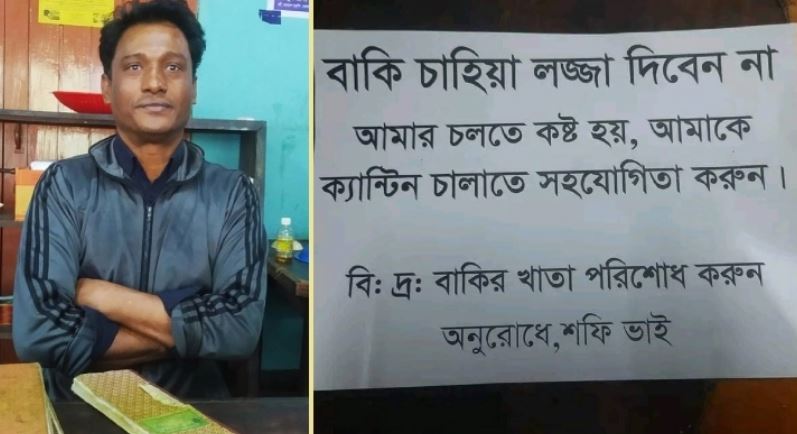 বাকি চাহিয়া লজ্জা দিবেন না
আমার চলতে কষ্ট হয়, আমাকে
ক্যান্টিন চালাতে সহযোগিতা করুন।
বি: দ্র: বাকির খাতা পরিশোধ করুন
অনুরোধে,শফি ভাই